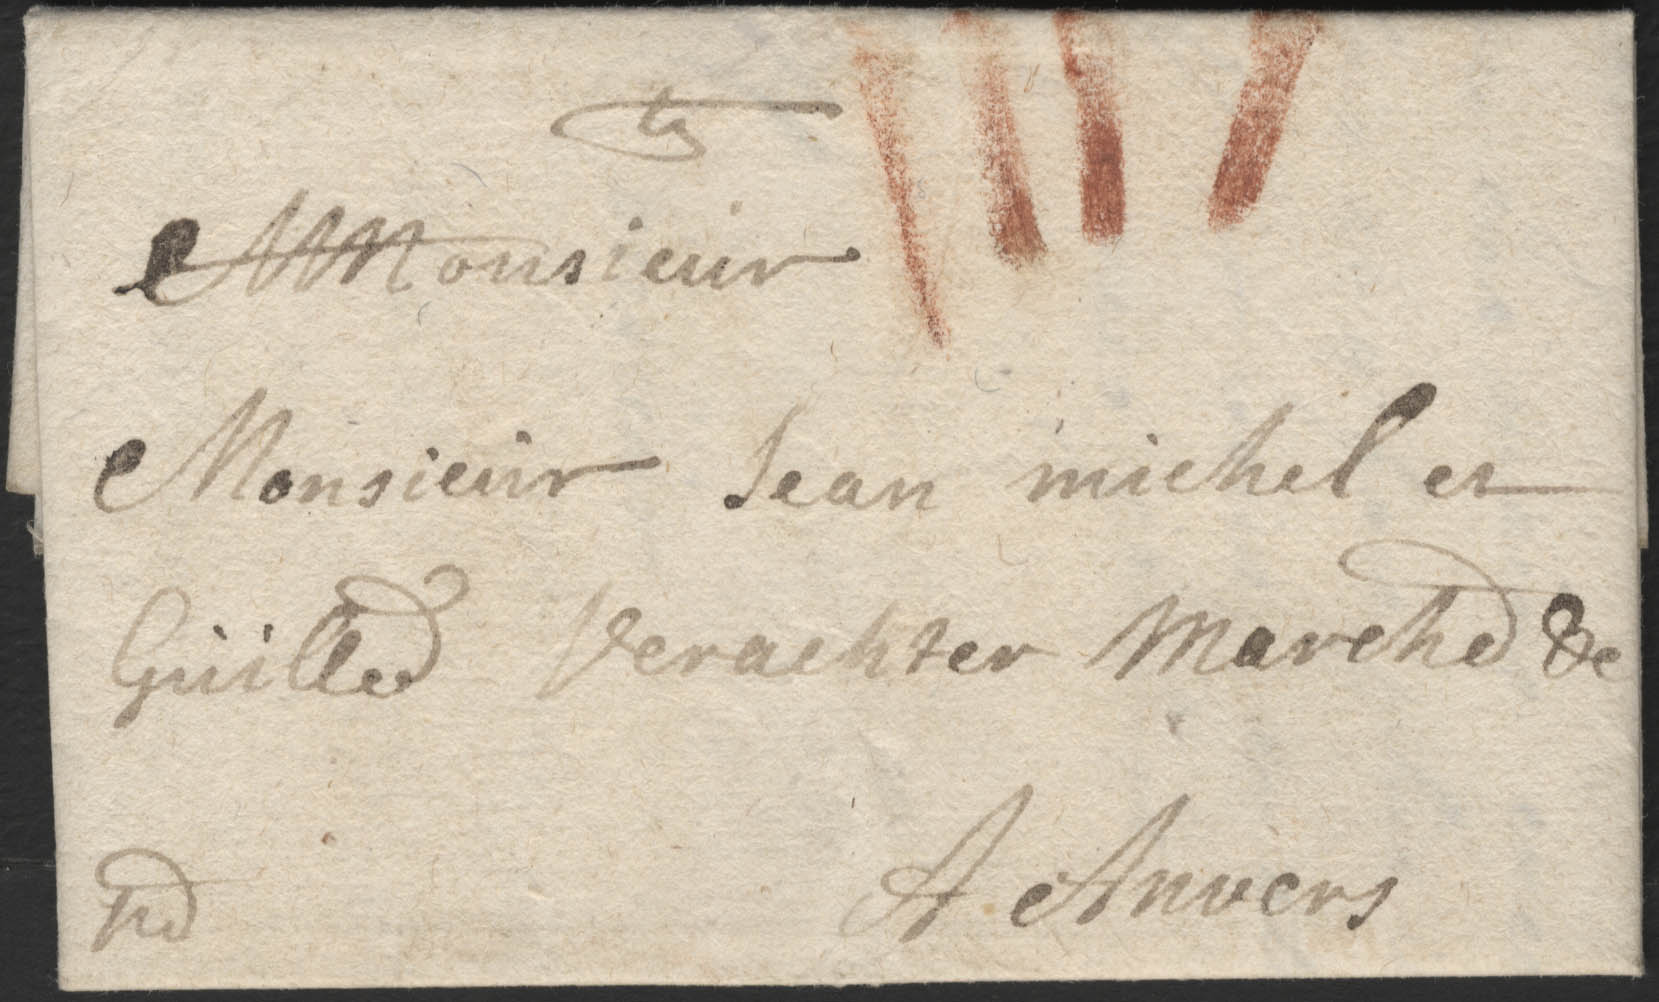 Monsieur
Monsieur Jean michel et
Guilled Verachter Marched &c
A Anvers